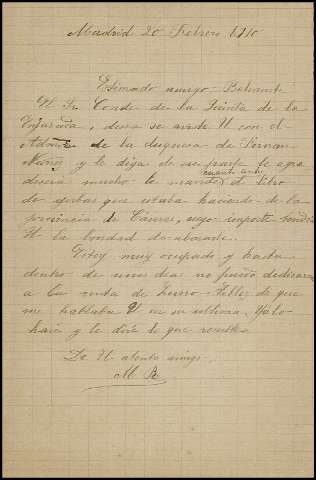 Madrid 20 Febrero 1910
Estimado amigo
El Sr Conde de la Quinta de la
Enjarada, desea se aviste U con el
Admor de la duquesa de Fernan
Nuñez y le diga de su parte le agra
deceria mucho le mandase el Libro
cuanto antes
de yerbas que estaba haciendo de la
provincia de Cáceres, cuyo importe tendrá
U la bondad de abonarle.
Estoy muy ocupado y hasta
dentro de unos dias no puedo dedicarme
a la venta de que
me hablaba U en su ultima, ya lo
haré y le diré lo que resulte.
De U atento amigo
M